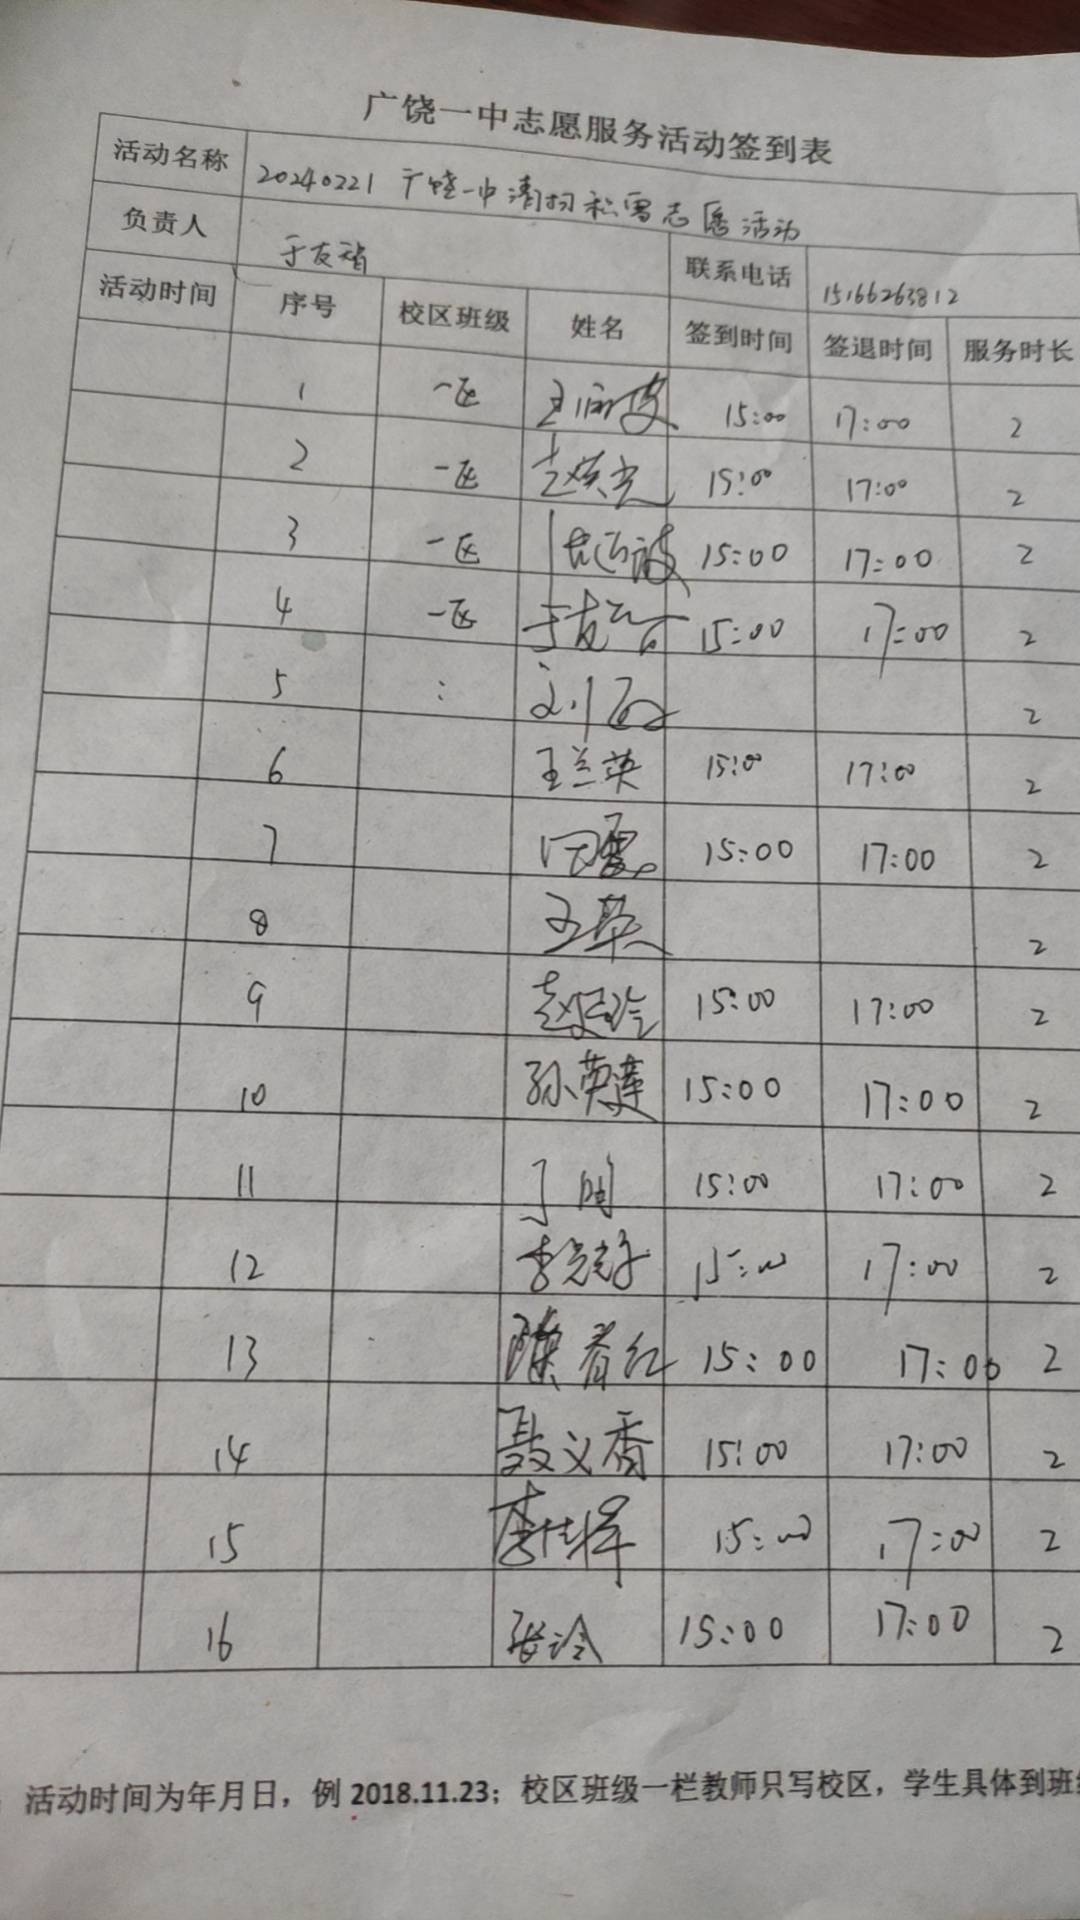 广饶一中志愿服务活动签到表
活动名称 20240221 广饶一中清扫积雪志愿活动
负责人 于友 联系电话 15166263812
活动时间 序号 校区班级 姓名 签到时间 签退时间 服务时长
1 一区 王 15:00 17:00 2
2 一区 赵 15:00 17:00 2
3 一区 15:00 17:00 2
4 一区 于友 15:00 17:00 2
5 : 刘 2
6 王兰英 15:00 17:00 2
7 15:00 17:00 2
8 王英 2
9 赵玲 15:00 17:00 2
10 孙英莲 15:00 17:00 2
11 丁 15:00 17:00 2
12 李 15:00 17:00 2
13 陈春红 15:00 17:00 2
14 聂义香 15:00 17:00 2
15 李 15:00 17:00 2
16 张冷 15:00 17:00 2
活动时间为年月日，例 2018.11.23；校区班级一栏教师只写校区，学生具体到班